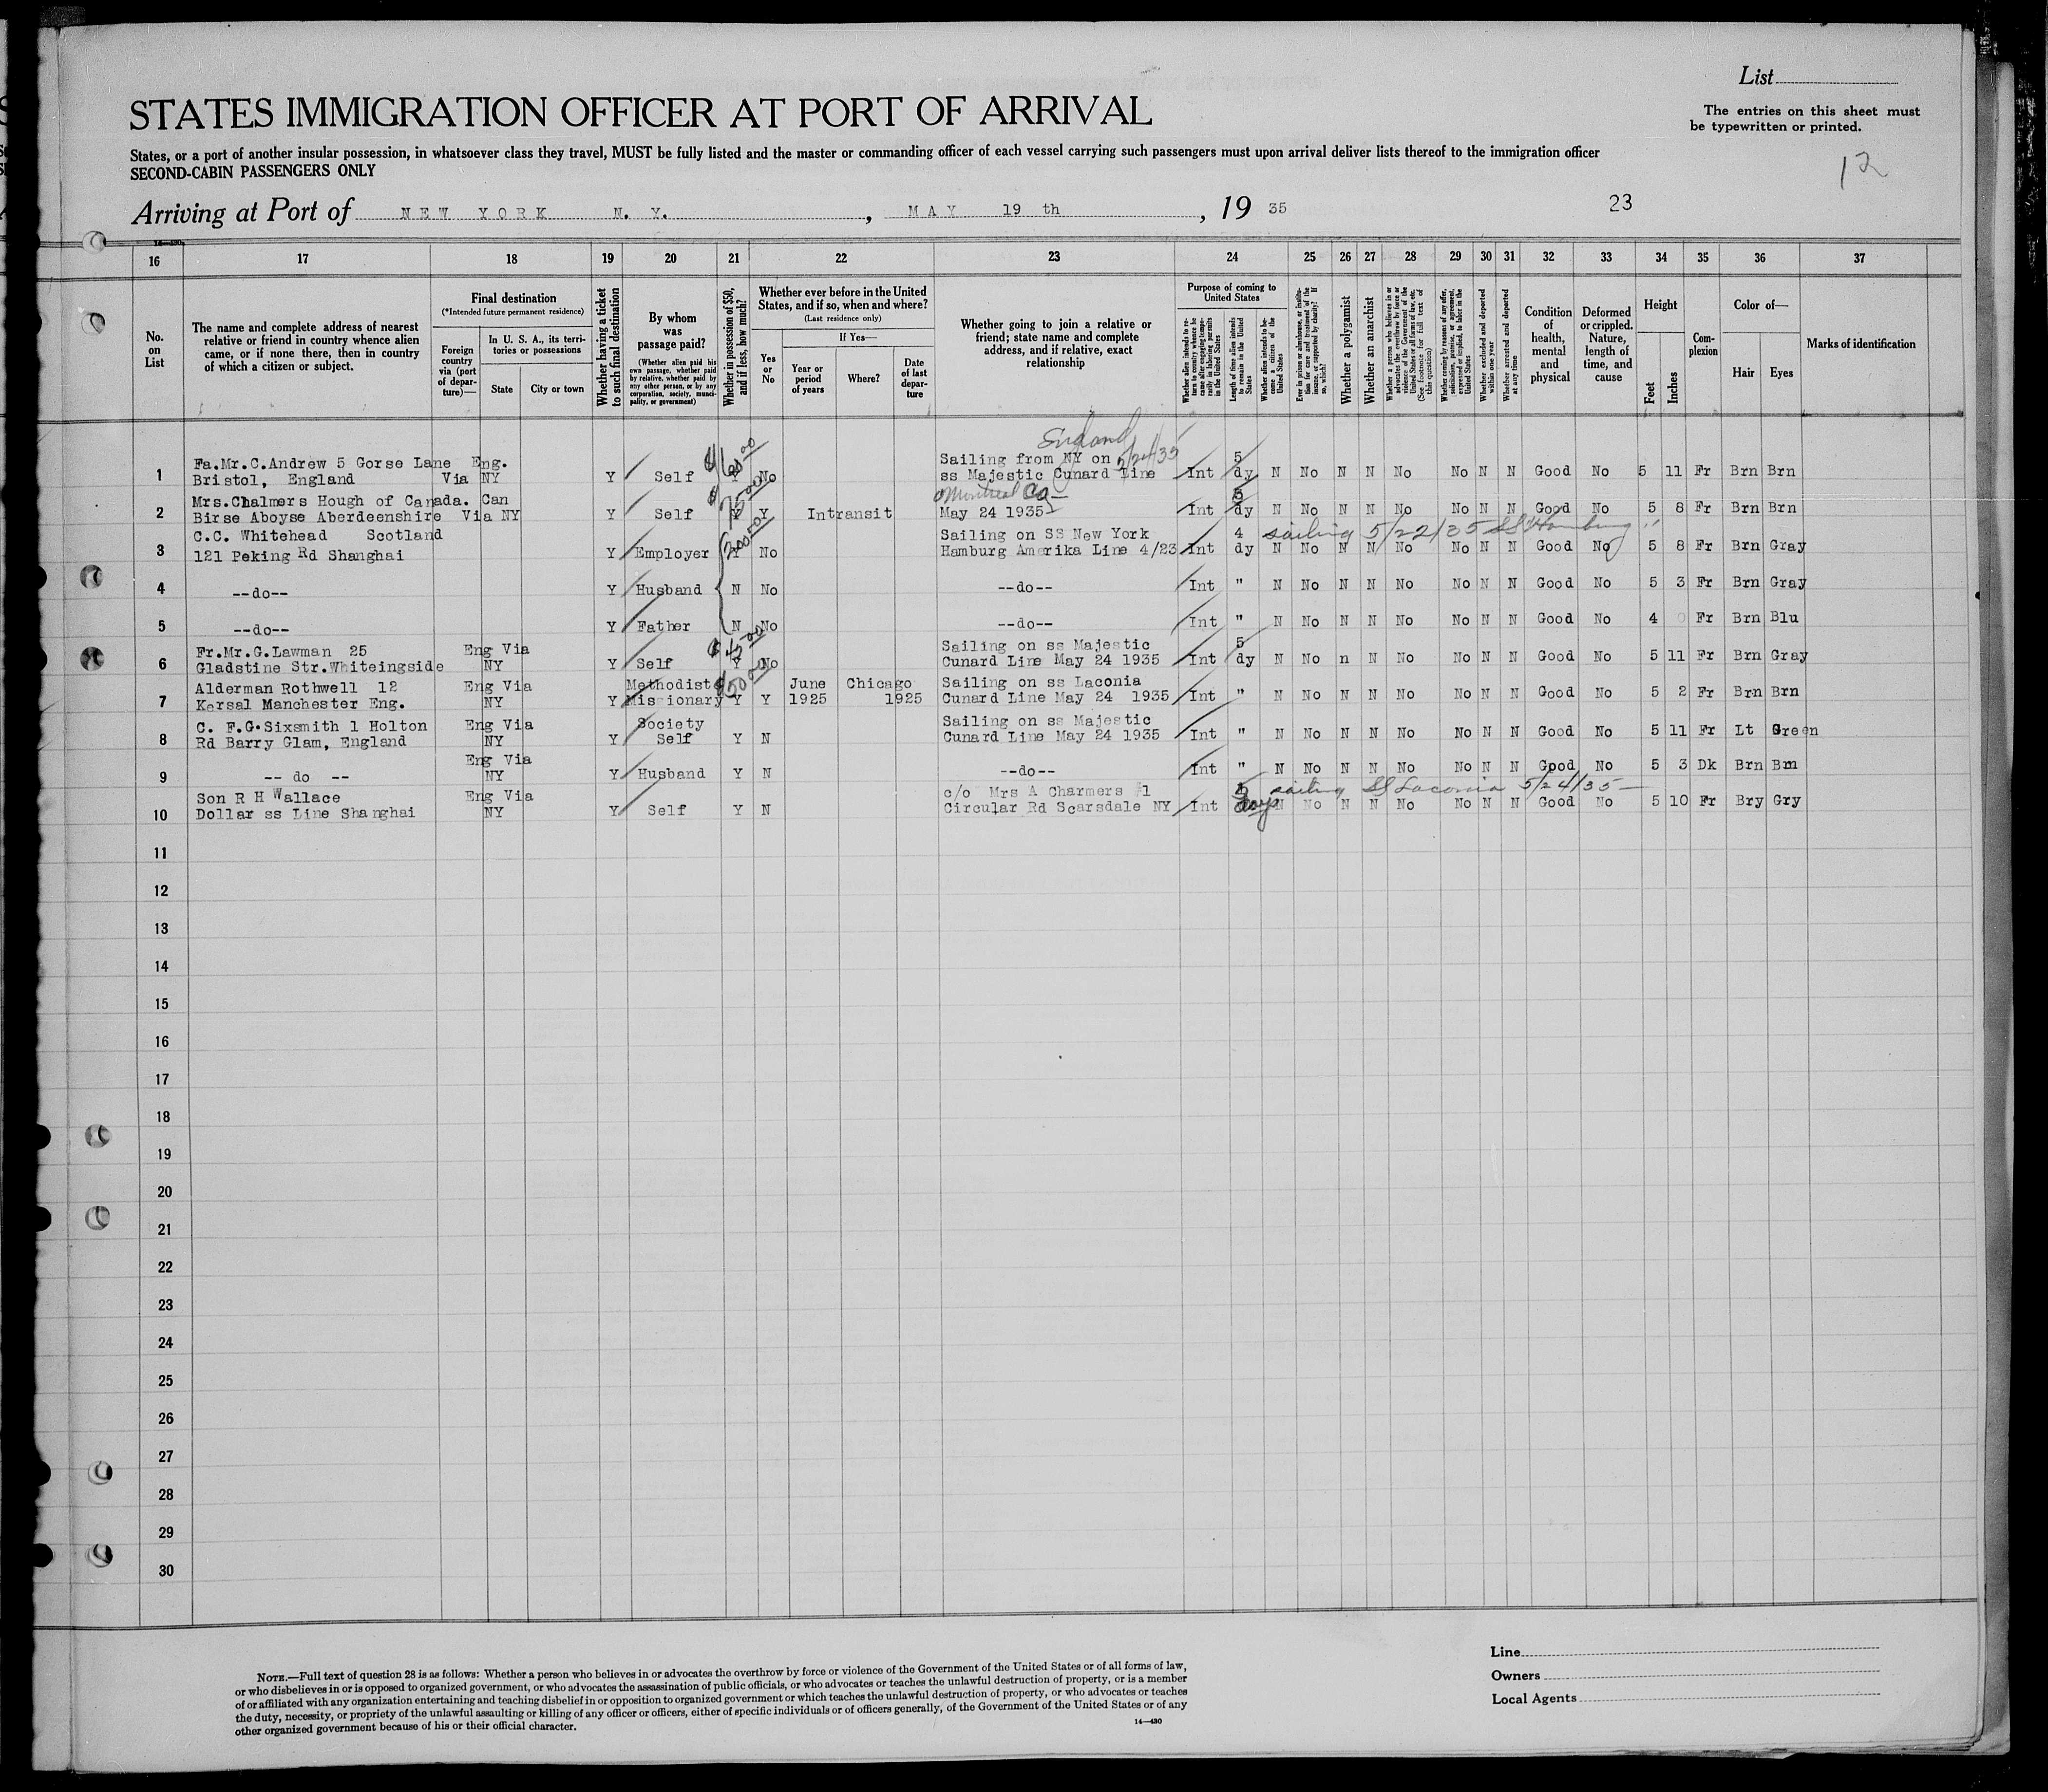 List
STATES IMMIGRATION OFFICER AT PORT OF ARRIVAL
The entries on this sheet must
be typewritten or printed.
States, or a port of another insular possession, in whatsoever class they travel, MUST be fully listed and the master or commanding officer of each vessel carrying such passengers must upon arrival deliver lists thereof to the immigration officer
SECOND-CABIN PASSENGERS ONLY
12
Arriving at Port of NEW YORK N. Y. , MAY 19 th , 19 35 23
16 17 18 19 20 21 22 23 24 25 26 27 28 29 30 31 32 33 34 35 36 37
No. on List
The name and complete address of nearest relative or friend in country whence alien came, or if none there, then in country of which a citizen or subject.
Final destination
(*Intended future permanent residence)
Foreign country via (port of departure)—
In U. S. A., its territories or possessions
State
City or town
Whether having a ticket to such final destination
By whom was passage paid?
(Whether alien paid his own passage, whether paid by relative, whether paid by any other person, or by any corporation, society, municipality, or government)
Whether in possession of $50, and if less, how much?
Whether ever before in the United States, and if so, when and where?
(Last residence only)
Yes or No
If Yes—
Year or period of years
Where?
Date of last departure
Whether going to join a relative or friend; state name and complete address, and if relative, exact relationship
Purpose of coming to United States
Whether alien intends to return to country whence he came after engaging temporarily in laboring pursuits in the United States
Length of time alien intends to remain in the United States
Whether alien intends to become a citizen of the United States
Ever in prison or almshouse, or institution for care and treatment of the insane, or supported by charity? If so, which?
Whether a polygamist
Whether an anarchist
Whether a person who believes in or advocates the overthrow by force or violence of the Government of the United States or all forms of law, etc. (See footnote for full text of this question)
Whether coming by reason of any offer, solicitation, promise, or agreement, expressed or implied, to labor in the United States
Whether excluded and deported within one year
Whether arrested and deported at any time
Condition of health, mental and physical
Deformed or crippled. Nature, length of time, and cause
Height
Feet
Inches
Complexion
Color of—
Hair
Eyes
Marks of identification
England
Fa.Mr.C.Andrew 5 Gorse Lane Eng. $160.00 Sailing from NY on 5/24/35 5
1 Bristol, England Via NY Y Self Y No ss Majestic Cunard Line Int dy N No N N No No N N Good No 5 11 Fr Brn Brn
Mrs.Chalmers Hough of Canada. Can Montreal Ca 5
2 Birse Aboyse Aberdeenshire Via NY Y Self Y Y Intransit May 24 1935 Int dy N No N N No No N N Good No 5 8 Fr Brn Brn
C.C. Whitehead Scotland Sailing on SS New York 4 sailing 5/22/35 SS Hamburg
3 121 Peking Rd Shanghai Y Employer Y No Hamburg Amerika Line 4/23 Int dy N No N N No No N N Good No 5 8 Fr Brn Gray
4 --do-- Y Husband N No --do-- Int " N No N N No No N N Good No 5 3 Fr Brn Gray
5 --do-- Y Father N No --do-- Int " N No N N No No N N Good No 4 0 Fr Brn Blu
Fr.Mr.G.Lawman 25 Eng Via Sailing on ss Majestic 5
6 Gladstine Str.Whiteingside NY Y Self Y No Cunard Line May 24 1935 Int dy N No n N No No N N Good No 5 11 Fr Brn Gray
Alderman Rothwell 12 Eng Via Methodist June Chicago Sailing on ss Laconia
7 Kersal Manchester Eng. NY Y Missionary Y Y 1925 1925 Cunard Line May 24 1935 Int " N No N N No No N N Good No 5 2 Fr Brn Brn
C. F.G.Sixsmith 1 Holton Eng Via Society Sailing on ss Majestic
8 Rd Barry Glam, England NY Y Self Y N Cunard Line May 24 1935 Int " N No N N No No N N Good No 5 11 Fr Lt Green
Eng Via
9 -- do -- NY Y Husband Y N --do-- Int " N No N N No No N N Good No 5 3 Dk Brn Brn
Son R H Wallace Eng Via c/o Mrs A Charmers #1 5 sailing SS Laconia 5/24/35
10 Dollar ss Line Shanghai NY Y Self Y N Circular Rd Scarsdale NY Int days N No N N No No N N Good No 5 10 Fr Bry Gry
11
12
13
14
15
16
17
18
19
20
21
22
23
24
25
26
27
28
29
30
NOTE.—Full text of question 28 is as follows: Whether a person who believes in or advocates the overthrow by force or violence of the Government of the United States or of all forms of law,
or who disbelieves in or is opposed to organized government, or who advocates the assassination of public officials, or who advocates or teaches the unlawful destruction of property, or is a member
of or affiliated with any organization entertaining and teaching disbelief in or opposition to organized government or which teaches the unlawful destruction of property, or who advocates or teaches
the duty, necessity, or propriety of the unlawful assaulting or killing of any officer or officers, either of specific individuals or of officers generally, of the Government of the United States or of any
other organized government because of his or their official character.
14—430
Line
Owners
Local Agents